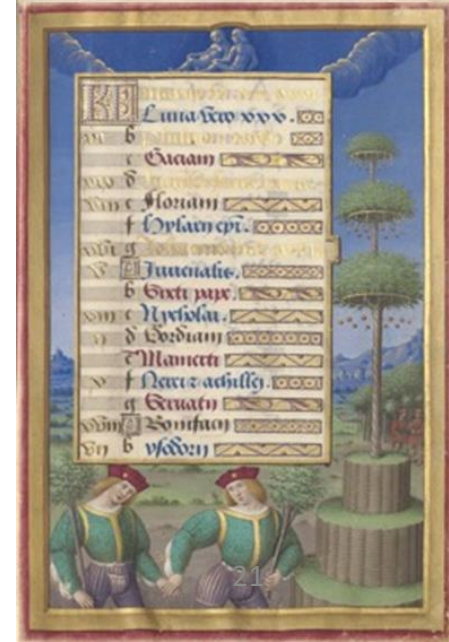 KL
Luna xxx.
b
c Gaciani
d
e Floriani
f Hylarii epi.
g
A Juvenalis.
b Sixti pape.
c Nycholai.
d Gordiani
e Mamerti
f Nerei z achillei
g Servatii
A Bonifacii
b ysidorii
21